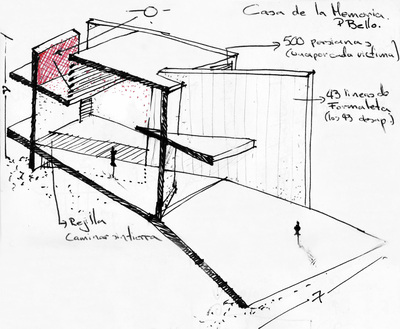 Casa de la Memoria.
P. Bello.
500 persianas
(una por cada victima)
43 lineas de
Formaleta
(los 43 desap.)
Rejilla
Caminar sin tierra
7